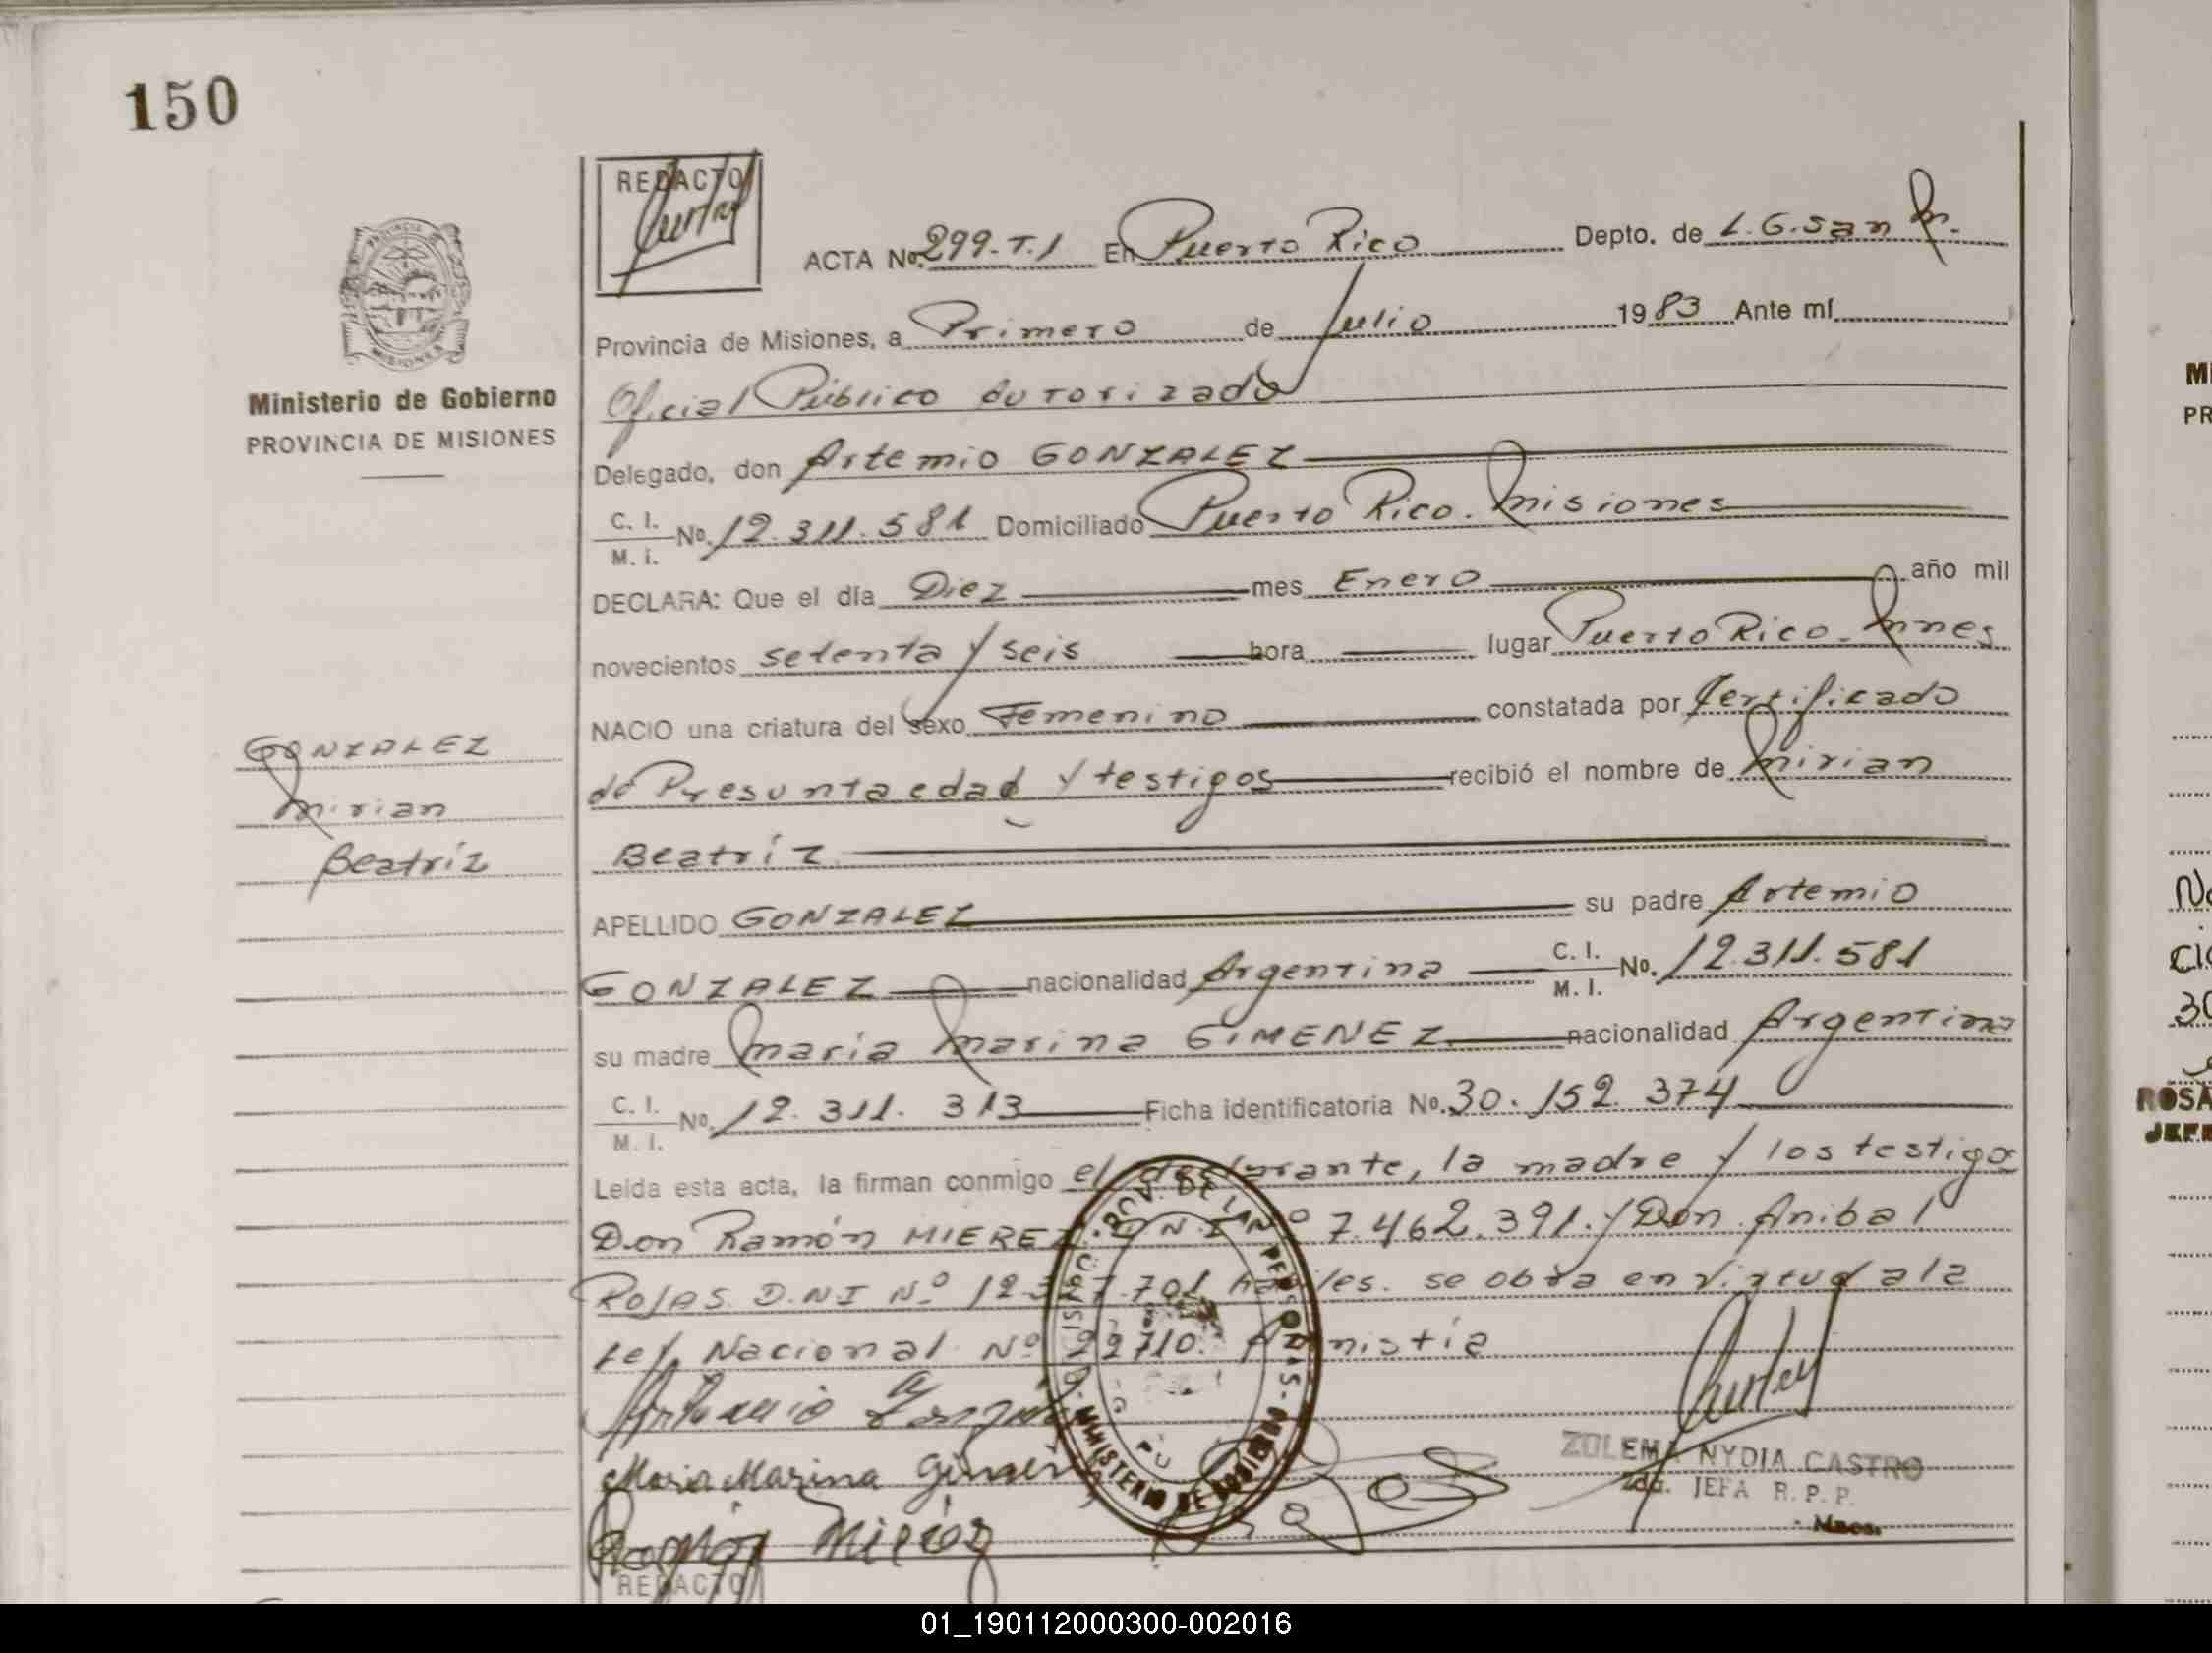 150
REDACTO
PROVINCIA DE MISIONES
Ministerio de Gobierno
PROVINCIA DE MISIONES
ACTA No. 299-T.1 En Puerto Rico Depto. de L.G.San M.
Provincia de Misiones, a Primero de Julio 1983 Ante mí
Oficial Público Autorizado
Delegado, don Artemio GONZALEZ
C. I. / M. I. No. 12.311.581 Domiciliado Puerto Rico. Misiones
DECLARA: Que el día Diez mes Enero año mil
novecientos setenta y seis hora lugar Puerto Rico. Mnes
NACIO una criatura del sexo Femenino constatada por Certificado
de Presunta edad y testigos recibió el nombre de Mirian
Beatríz
GONZALEZ
Mirian
Beatríz
APELLIDO GONZALEZ su padre Artemio
GONZALEZ nacionalidad Argentina C. I. / M. I. No. 12.311.581
su madre María Marina GIMENEZ. nacionalidad Argentina
C. I. / M. I. No. 12.311.313 Ficha identificatoria No. 30.152.374
Leida esta acta, la firman conmigo el declarante, la madre y los testigo
Don Ramón MIEREZ. D.N.I Nº 7.462.391. y Don Anibal
ROJAS. D.NI Nº 12.3 7.701 hábiles. se obra en virtud a la
Ley Nacional Nº 22710. Amnistía
Maria Marina Gimenez
Ramón Mierez
MINISTERIO DE GOBIERNO
DE LAS PERSONAS
ZULEMA NYDIA CASTRO
JEFA R. P. P.
Mnes.
REDACTO
M
PR
No
30
ROSA
JEFE
01_190112000300-002016